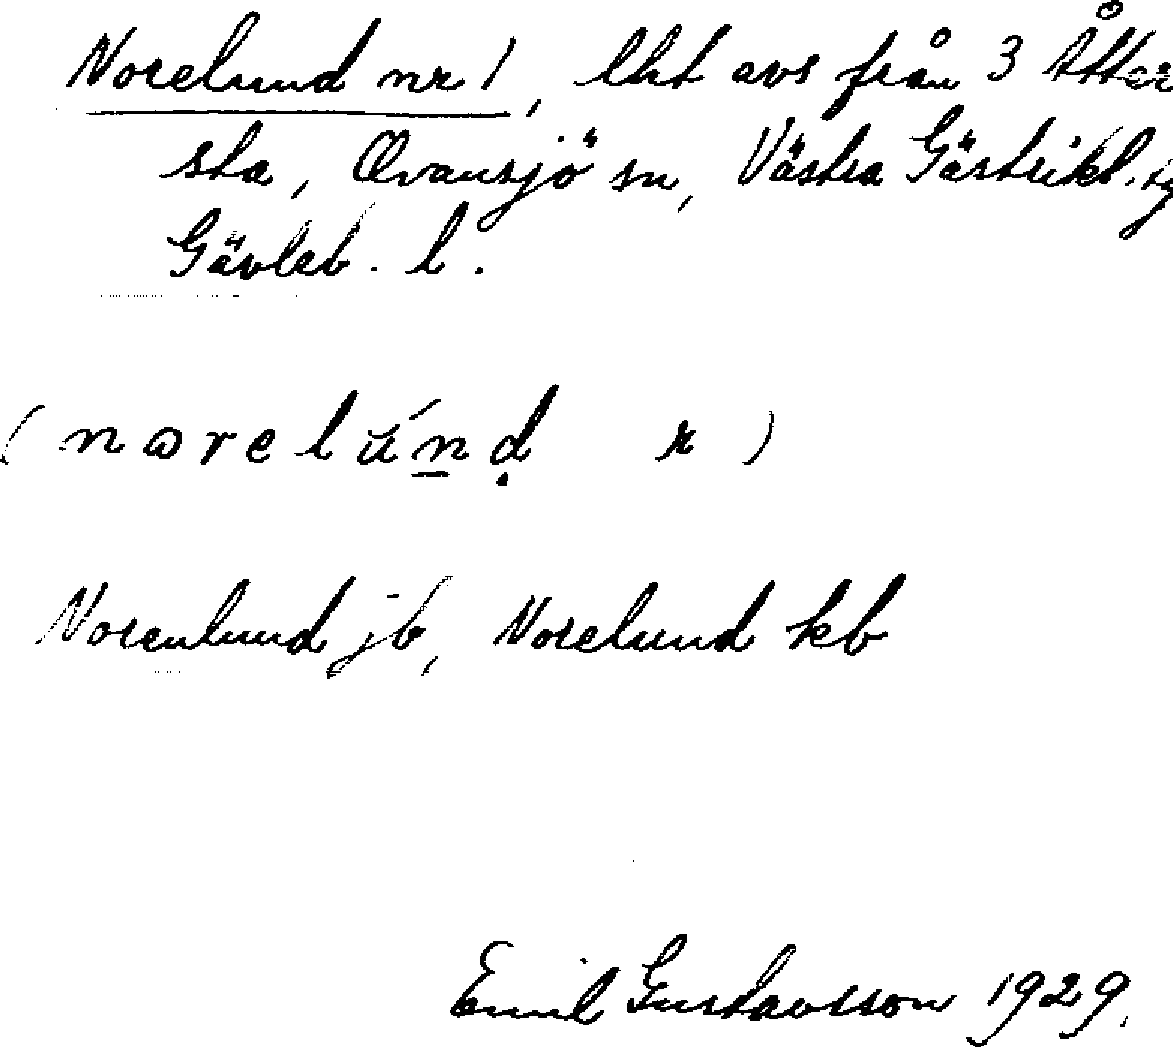 Norelund nr 1, lht avs från 3 Åtter
sta, Ovansjö sn, Västra Gästrikl. tg
Gävleb. l.
(norelúnḍ r)
Norenlund jb, Norelund kb
Emil Gustavsson 1929.